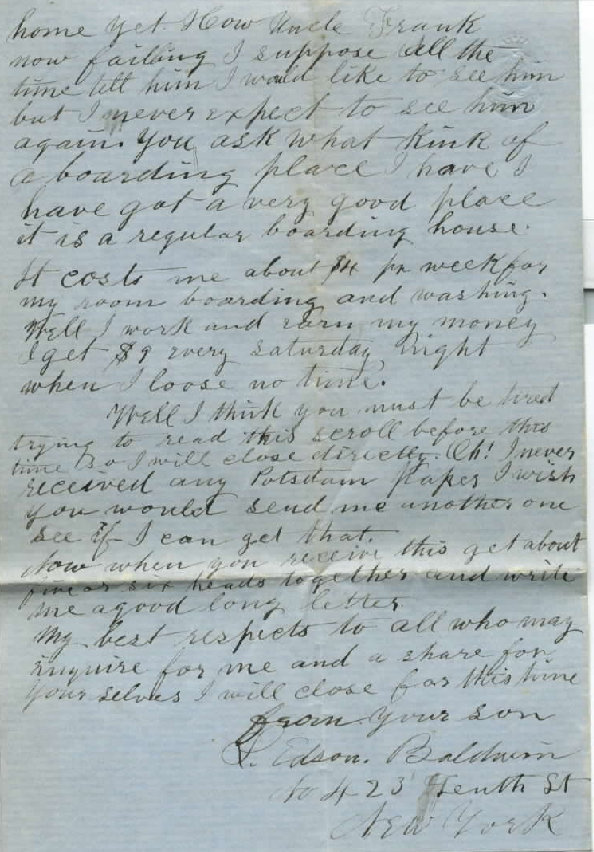 home yet. How Uncle Frank
now failing I suppose all the
time tell him I would like to see him
but I never expect to see him
again. You ask what Kink of
a boarding place I have I
have got a very good place
it is a regular boarding house.
It costs me about $4 pr week for
my room boarding and washing.
Well I work and earn my money
I get $9 every Saturday night
when I loose no time.
Well I think you must be tired
trying to read this scroll before this
time so I will close directly. Oh! I never
received any Potsdam Paper I wish
you would send me another one
see if I can get that.
Now when you receive this get about
five or six heads together and write
me a good long letter
My best respects to all who may
enquire for me and a share for
yourselves I will close for this time
from your son
Edson. Baldwin
No 423 Tenth St
New York